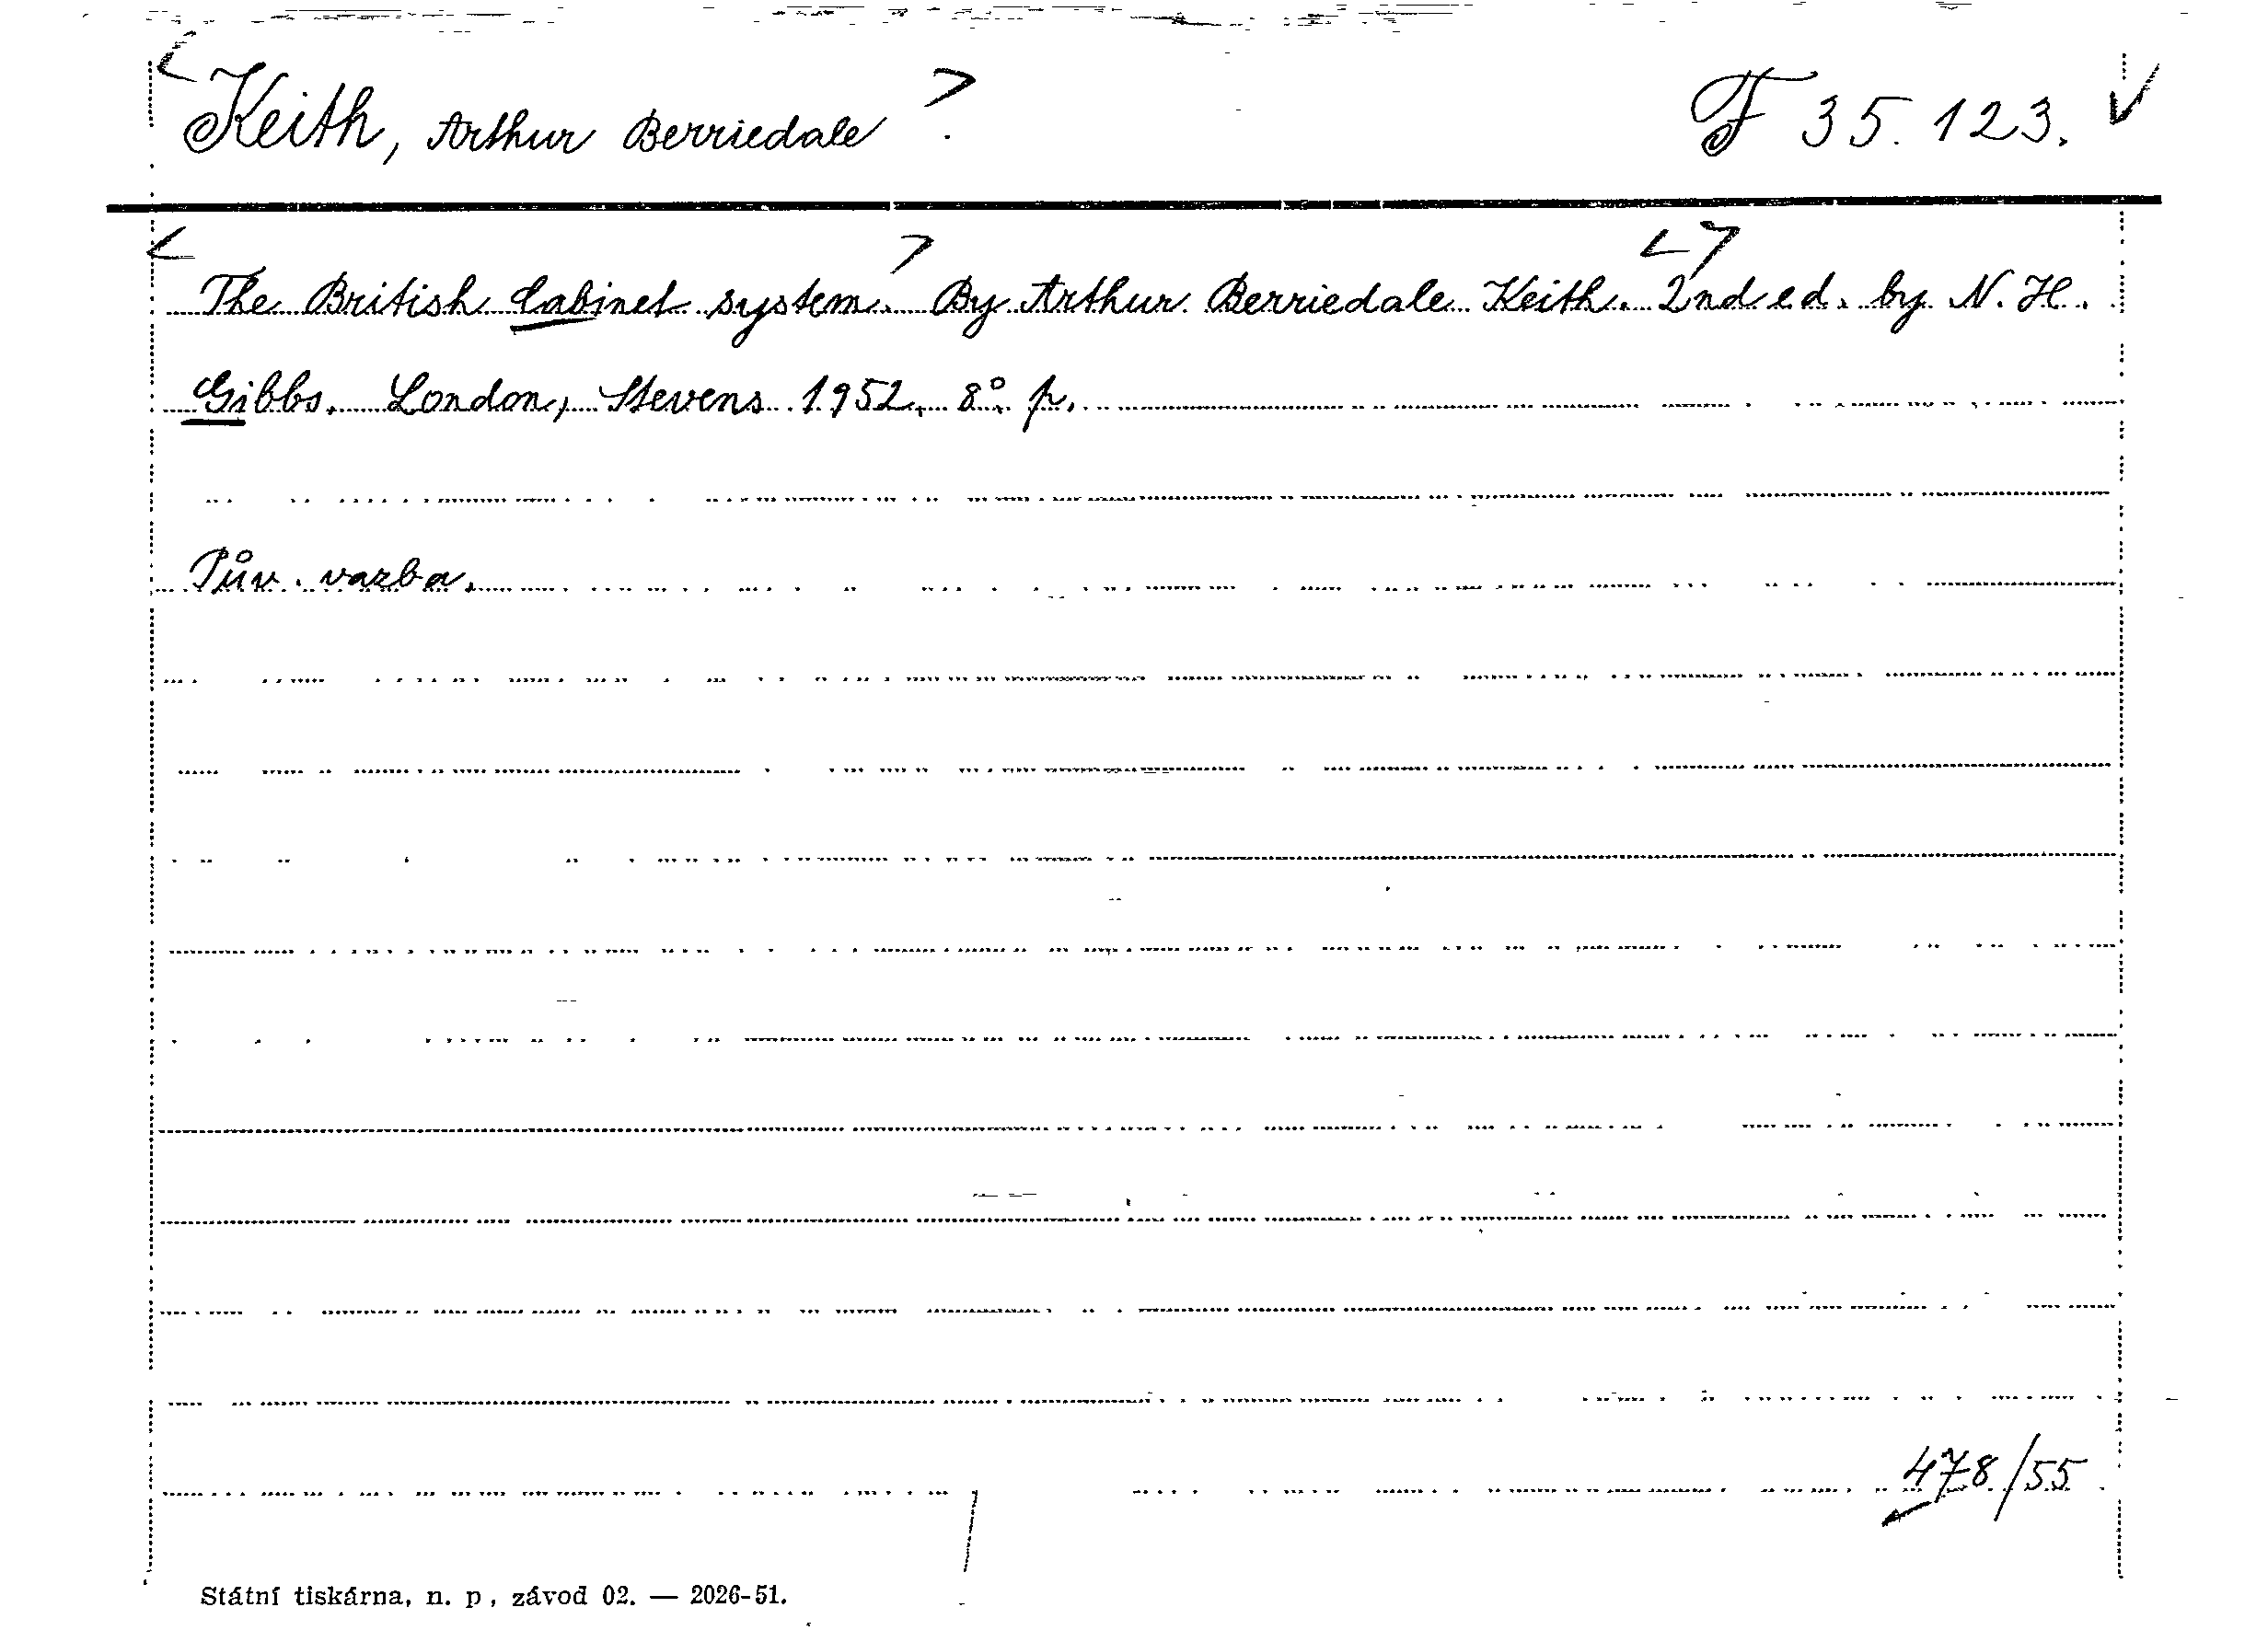 Keith, Arthur Berriedale.
F 35.123.
The British Cabinet system. By Arthur Berriedale Keith. 2nd ed. by N. H.
Gibbs. London, Stevens 1952. 8° p.
Pův. vazba.
478/55
Státní tiskárna, n. p., závod 02. — 2026-51.